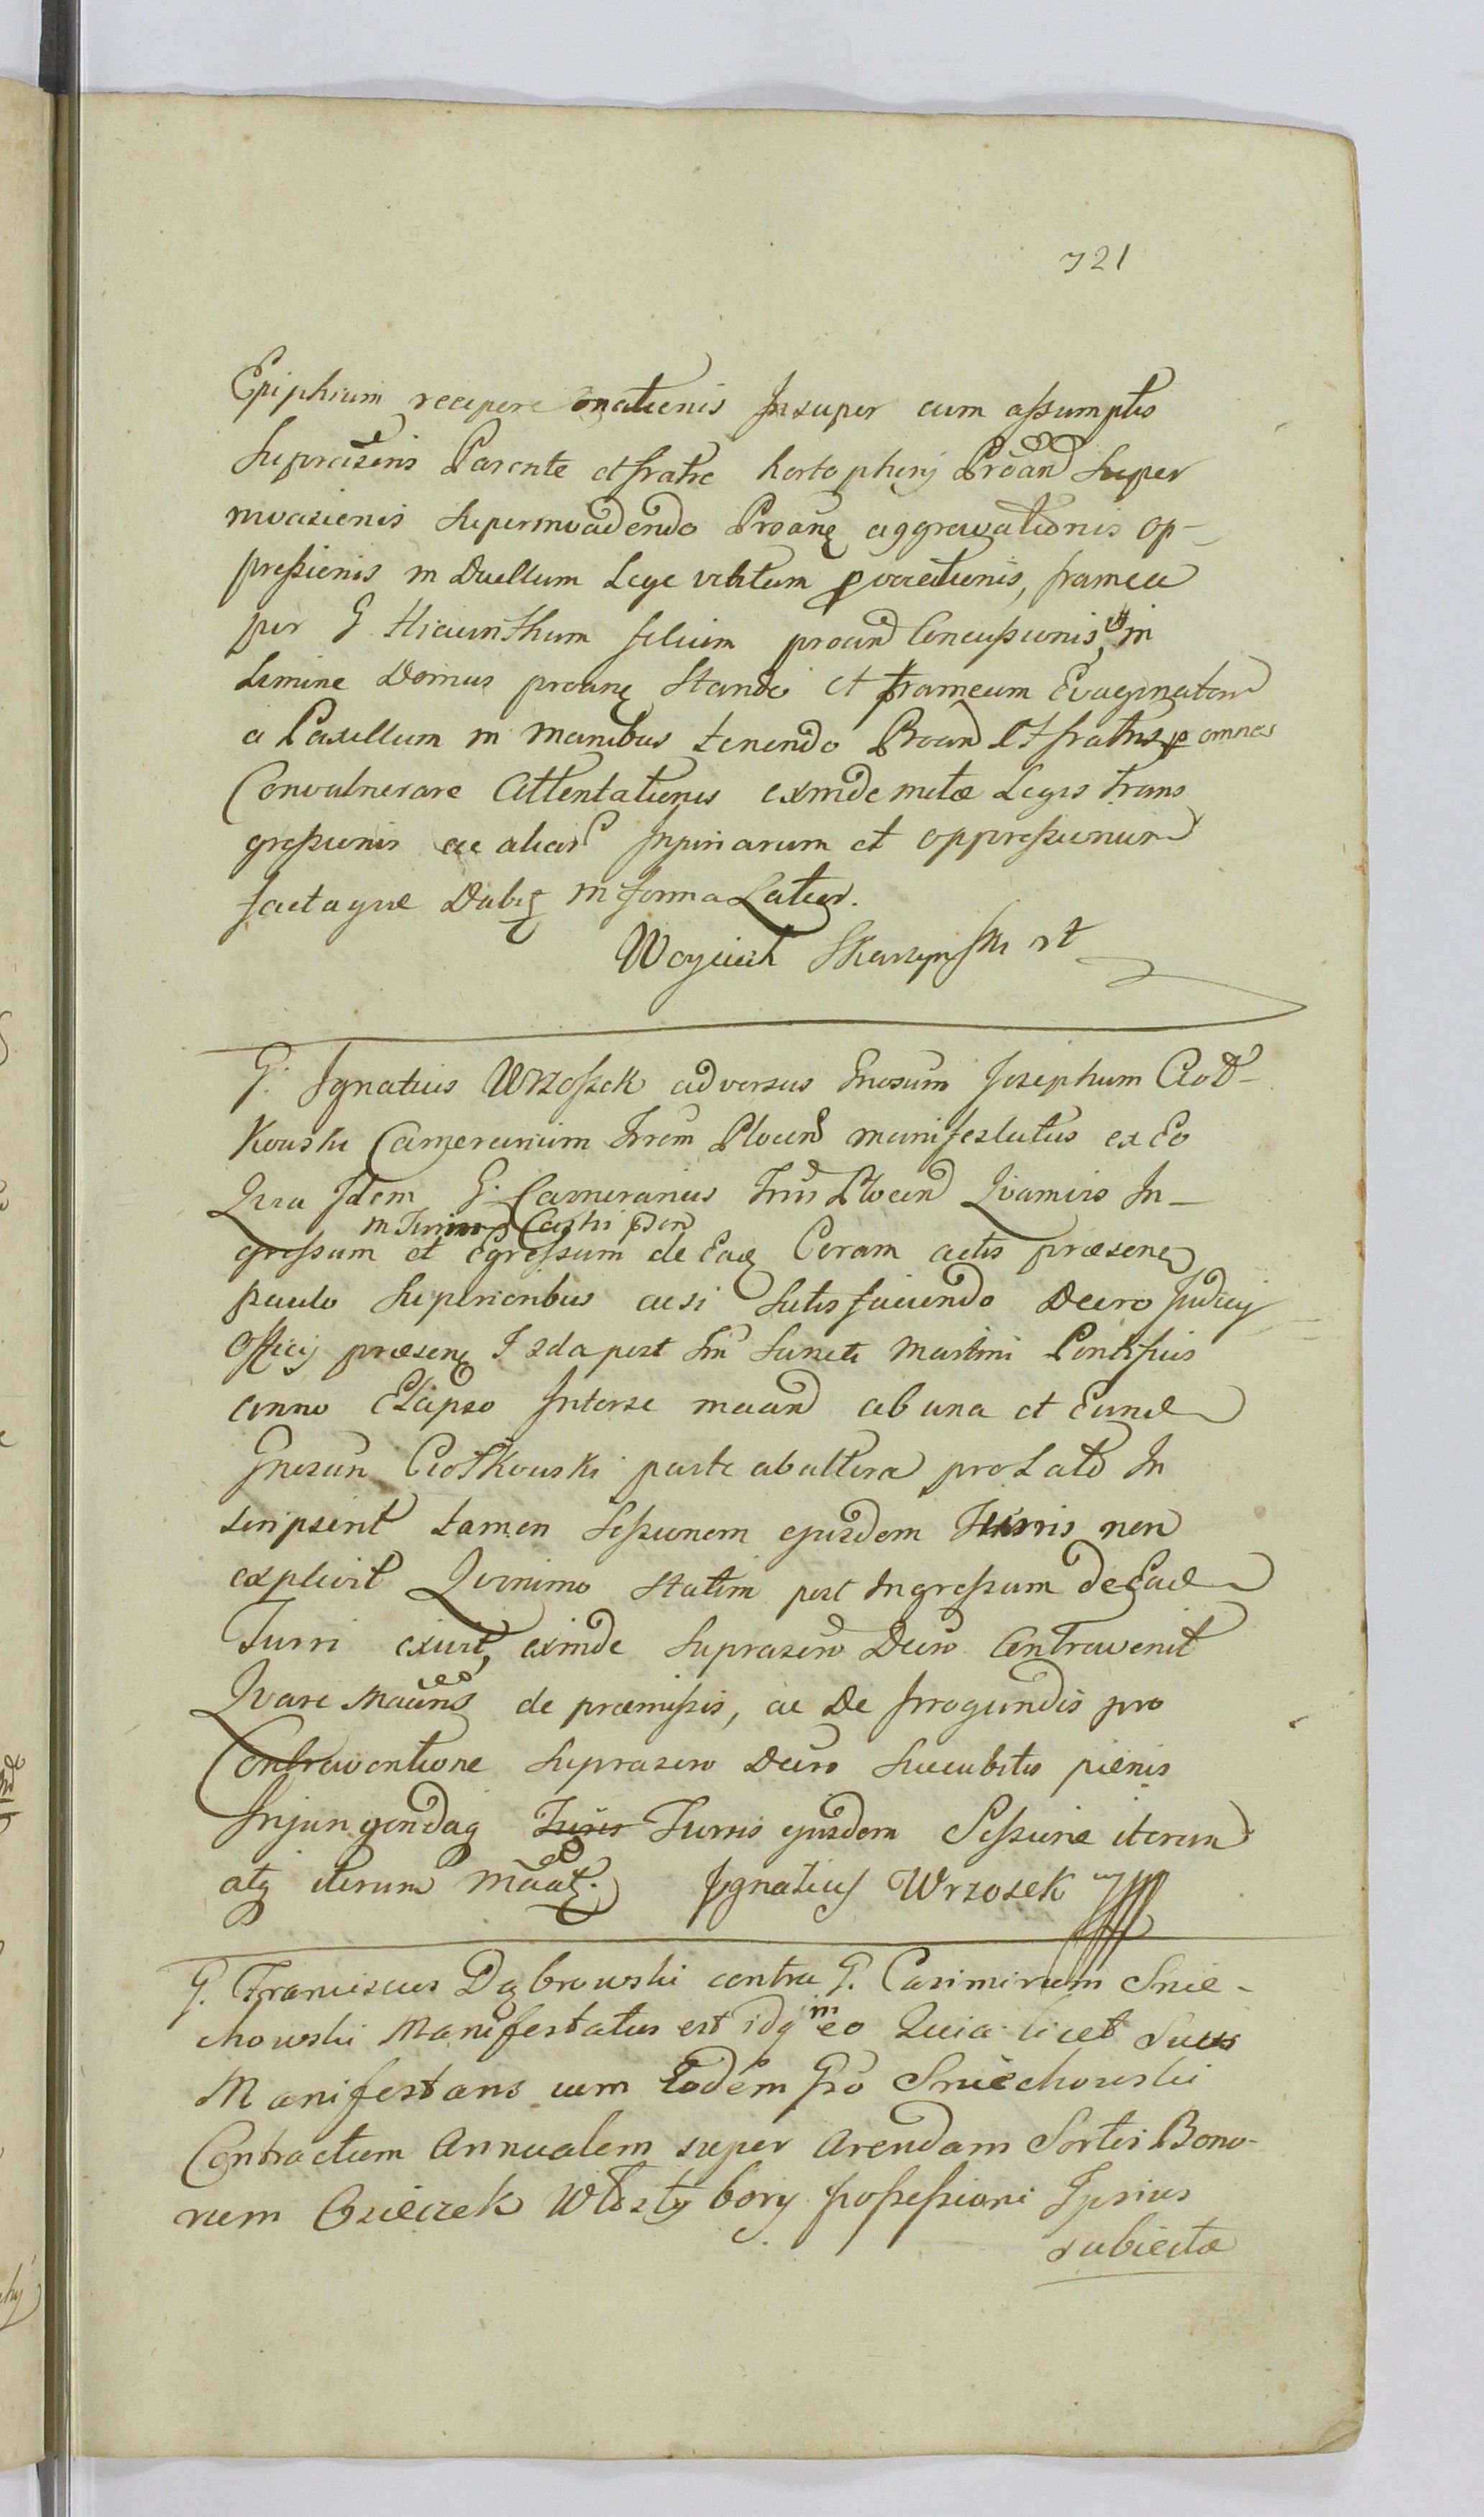 721
Epiphium recipere conationis Insuper cum assumptis
Suprascris Parente et fratre hortophirij Proand super
invasionis superinvadendo Proane aggravationis op-
pressionis in Duellum Lege vetitum provocationis, framea
per G. Hiacinthum filium proand Concussionis, in
Limine Domus proane stando et frameam Evaginatam
a Paxillum in manibus tenendo Proand et fratres p omnes
Convulnerare Attentationis exinde metæ Legis trans
gressionis ac aliar Injuriarum et oppressionum
factaque Dabit in forma Latior.
Woyciech Skarzynski rt
G. Ignatius Wrzossek adversus Gnosum Josephum Ciot-
kowski Camerarium Trrem Plocen manifestatus ex Eo
Quia Idem G. Camerarius Trris Plocen Qvamvis In-
in Turrim Castri pden
gressum et Egressum de Eade Coram actis præsene
paulo superioribus acsi satisfaciendo Decro Judicij
Officij præsene F 2da post Fm Sancti Martini Pontificis
anno Elapso Interse maand ab una et Eund
Gnosum Ciotkowski parte ab altera prolato In
scripserit tamen Sessionem ejusdem Turris non
explevit Qvinimo statim post Ingressum de Eade
Turri exivit, exinde suprascro Decro Contravenit
Qvare Maans de præmissis, ac De Irrogandis pro
Contraventione suprascro Decro succubitis pænis
Injungendaq Turris ejusdem Sessione iterum
atq iterum Maatr. Ignatius Wrzosek mp
G. Franciscus Dąbrowski contra G. Casimirum Snie-
chowski Manifestatus est idq in eo Quia licet Suus
Manifestans cum Eodem Gso Sniechowski
Contractum Annualem super Arendam Sortis Bono-
rum Osieczek Włosty bory possessioni Ipsius
subiectæ